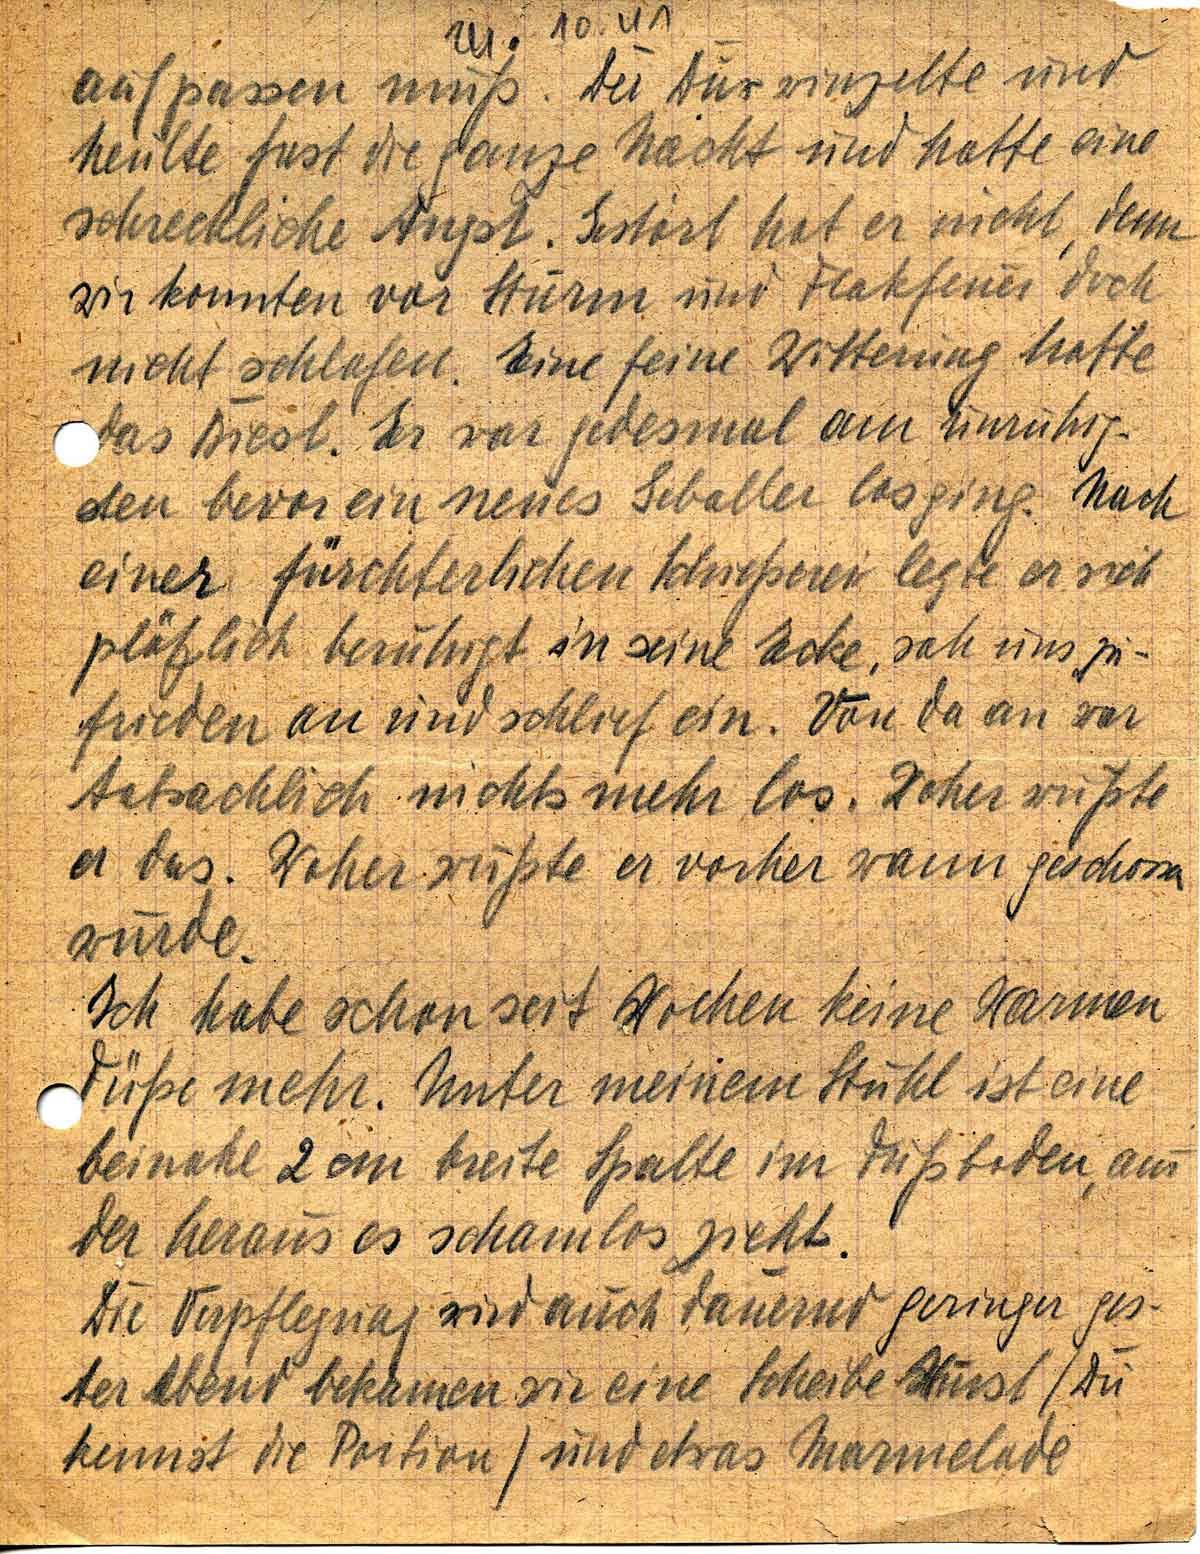 10.41
aufpassen muß. Der winzelte und
heulte fast die ganze Nacht und hatte eine
schreckliche Angst. Gestört hat er nicht, denn
wir konnten vor Sturm und Flakfeuer doch
nicht schlafen. Eine feine Witterung hatte
das Biest. Er war jedesmal am unruhig-
sten bevor ein neues Geballer losging. Nach
einer fürchterlichen Schießerei legte er sich
plötzlich beruhigt in seine Ecke, sah uns zu-
frieden an und schlief ein. Von da an war
tatsachlich nichts mehr los. Woher wußte
er das. Woher wußte er vorher wann geschossen
wurde.
Ich habe schon seit Wochen keine Warmen
Füße mehr. Unter meinem Stuhl ist eine
beinahe 2 cm breite Spalte im Fußboden, aus
der heraus es schamlos zieht.
Die Verpflegung wird auch dauernd geringer ges-
ter Abend bekamen wir eine Scheibe Wurst / Du
kennst die Portion / und etwas Marmelade